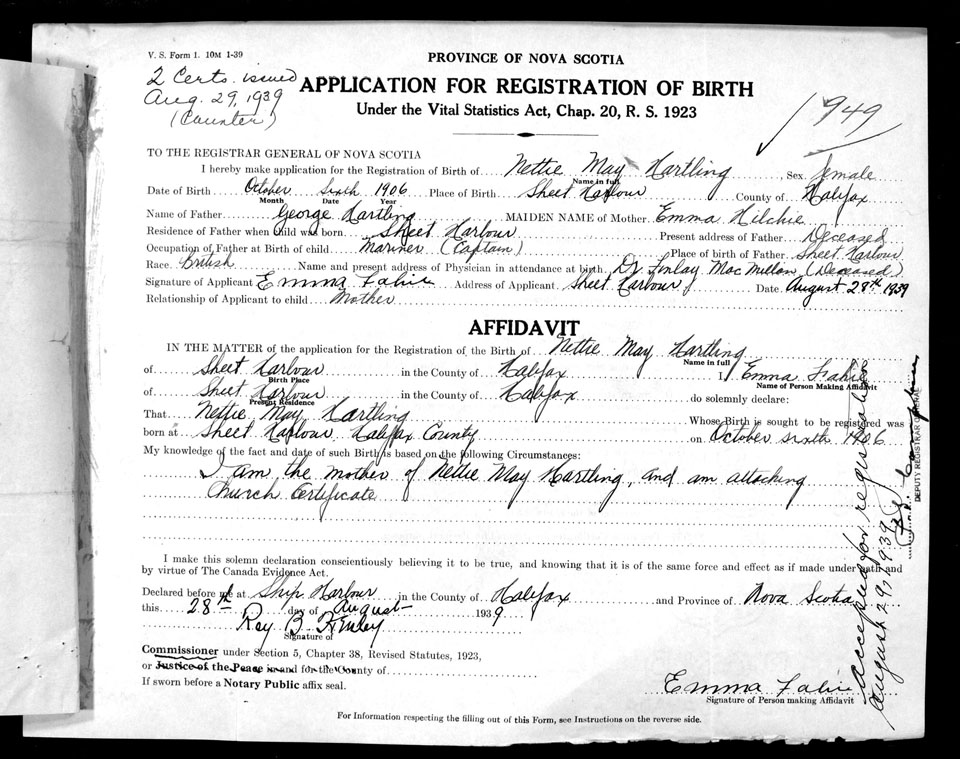 V. S. Form 1. 10M 1-39
2 Certs. issued
Aug. 29, 1939
(Counter)
PROVINCE OF NOVA SCOTIA
APPLICATION FOR REGISTRATION OF BIRTH
Under the Vital Statistics Act, Chap. 20, R. S. 1923
949
TO THE REGISTRAR GENERAL OF NOVA SCOTIA
I hereby make application for the Registration of Birth of Nettie May Hartling Sex female
Name in full
Date of Birth October Sixth 1906 Place of Birth Sheet Harbour County of Halifax
Month Date Year
Name of Father George Hartling MAIDEN NAME of Mother Emma Hilchie
Residence of Father when Child was born Sheet Harbour Present address of Father Deceased
Occupation of Father at Birth of child Mariner (Captain) Place of birth of Father Sheet Harbour
Race British Name and present address of Physician in attendance at birth Dr Finlay MacMillan (Deceased)
Signature of Applicant Emma Address of Applicant Sheet Harbour Date August 28th 1939
Relationship of Applicant to child Mother
AFFIDAVIT
IN THE MATTER of the application for the Registration of the Birth of Nettie May Hartling
Name in full
of Sheet Harbour in the County of Halifax I, Emma
Birth Place Name of Person Making Affidavit
of Sheet Harbour in the County of Halifax do solemnly declare:
Present Residence
That Nettie May Hartling Whose Birth is sought to be registered was
born at Sheet Harbour Halifax County on October sixth 1906
My knowledge of the fact and date of such Birth is based on the following Circumstances:
I am the mother of Nettie May Hartling, and am attaching
Church Certificate
I make this solemn declaration conscientiously believing it to be true, and knowing that it is of the same force and effect as if made under oath and
by virtue of The Canada Evidence Act.
Declared before me at Ship Harbour in the County of Halifax and Province of Nova Scotia
this 28th day of August 1939
Roy B
Signature of
Commissioner under Section 5, Chapter 38, Revised Statutes, 1923,
or Justice of the Peace in and for the County of
If sworn before a Notary Public affix seal.
Emma
Signature of Person making Affidavit
For Information respecting the filling out of this Form, see Instructions on the reverse side.
accepted for registration
August 29, 1939
DEPUTY REGISTRAR GENERAL